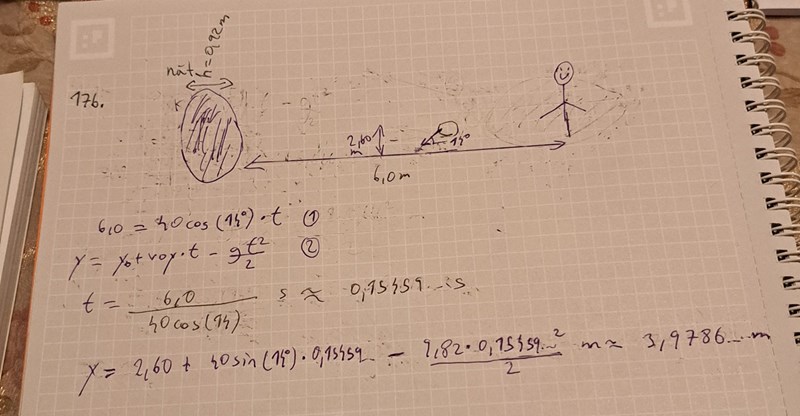 nät r=0,92m
176.
2,60 m
14°
6,0m
6,0 = 40cos(14°)·t ①
y = y₀ + v₀y·t - gt²/2 ②
t = 6,0/40cos(14) s ≈ 0,15459... s
y = 2,60 + 40sin(14°)·0,15459... - 9,82·0,15459...²/2 m ≈ 3,9786... m